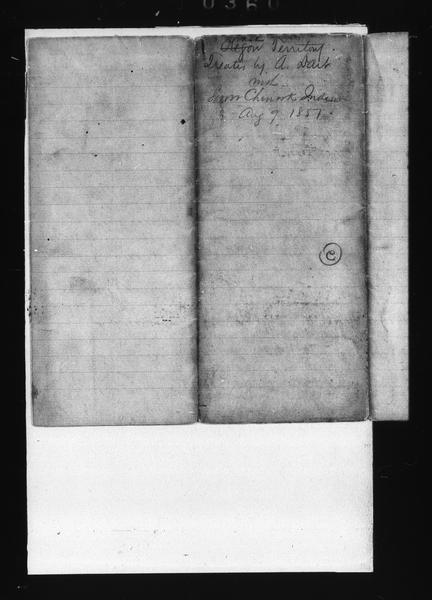 0360
Oregon Territory.
Treaty by A. Dart
with
Lower Chinook Indians
Aug 9, 1851
C